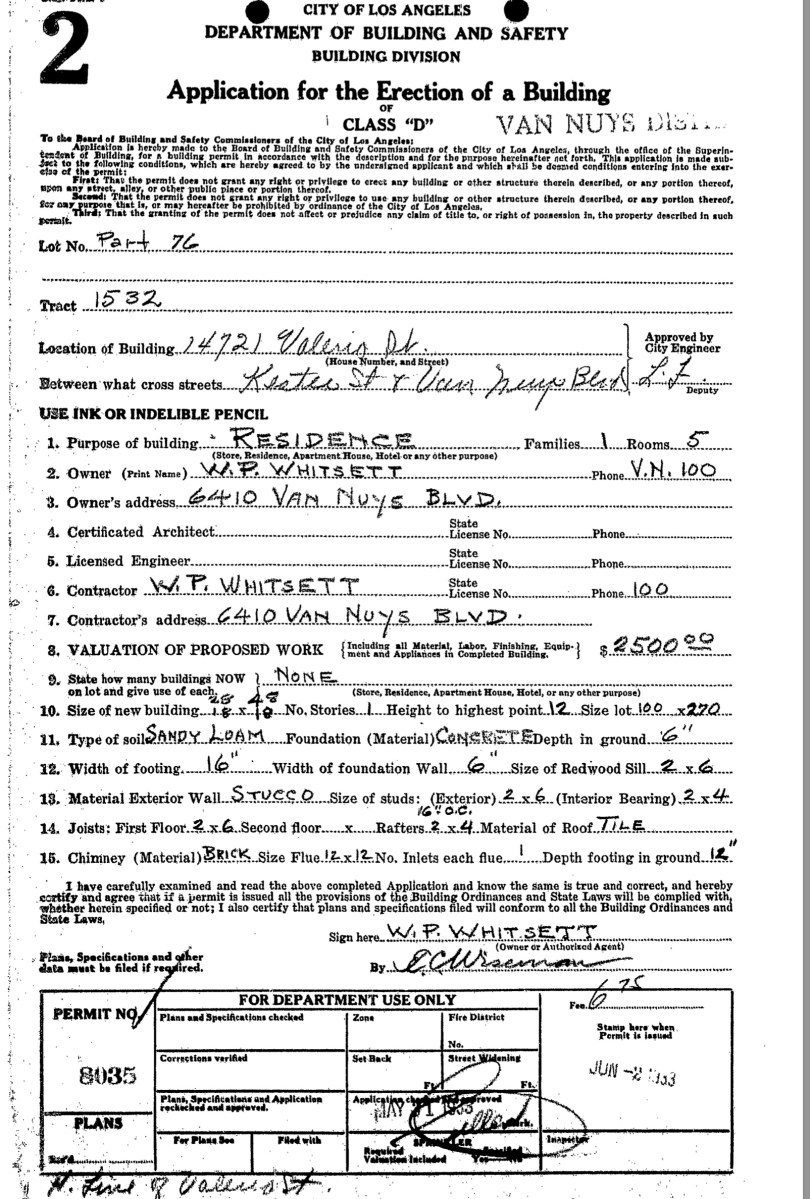 2
CITY OF LOS ANGELES
DEPARTMENT OF BUILDING AND SAFETY
BUILDING DIVISION
Application for the Erection of a Building
OF
CLASS "D"
VAN NUYS
To the Board of Building and Safety Commissioners of the City of Los Angeles:
Application is hereby made to the Board of Building and Safety Commissioners of the City of Los Angeles, through the office of the Superin-
tendent of Building, for a building permit in accordance with the description and for the purpose hereinafter set forth. This application is made sub-
ject to the following conditions, which are hereby agreed to by the undersigned applicant and which shall be deemed conditions entering into the exer-
cise of the permit:
First: That the permit does not grant any right or privilege to erect any building or other structure therein described, or any portion thereof,
upon any street, alley, or other public place or portion thereof.
Second: That the permit does not grant any right or privilege to use any building or other structure therein described, or any portion thereof,
for any purpose that is, or may hereafter be prohibited by ordinance of the City of Los Angeles.
Third: That the granting of the permit does not affect or prejudice any claim of title to, or right of possession in, the property described in such
permit.
Lot No. Part 76
Tract 1532
Location of Building 14721 Valerio St.
(House Number, and Street)
Approved by
City Engineer
Between what cross streets Kester St & Van Nuys Blvd
L.F.
Deputy
USE INK OR INDELIBLE PENCIL
1. Purpose of building RESIDENCE Families 1 Rooms 5
(Store, Residence, Apartment House, Hotel or any other purpose)
2. Owner (Print Name) W.P. WHITSETT Phone V.N. 100
3. Owner's address 6410 VAN NUYS BLVD.
4. Certificated Architect State License No. Phone
5. Licensed Engineer State License No. Phone
6. Contractor W.P. WHITSETT State License No. Phone 100
7. Contractor's address 6410 VAN NUYS BLVD.
8. VALUATION OF PROPOSED WORK {Including all Material, Labor, Finishing, Equip-ment and Appliances in Completed Building.} $ 2500 00
9. State how many buildings NOW on lot and give use of each. } NONE
(Store, Residence, Apartment House, Hotel, or any other purpose)
28 48
10. Size of new building x No. Stories 1 Height to highest point 12 Size lot 100 x 270
11. Type of soil SANDY LOAM Foundation (Material) CONCRETE Depth in ground 6"
12. Width of footing 16" Width of foundation Wall 6" Size of Redwood Sill 2 x 6
13. Material Exterior Wall STUCCO Size of studs: (Exterior) 2 x 6 (Interior Bearing) 2 x 4
16" O.C.
14. Joists: First Floor 2 x 6 Second floor x Rafters 2 x 4 Material of Roof TILE
15. Chimney (Material) BRICK Size Flue 12 x 12 No. Inlets each flue 1 Depth footing in ground 12"
I have carefully examined and read the above completed Application and know the same is true and correct, and hereby
certify and agree that if a permit is issued all the provisions of the Building Ordinances and State Laws will be complied with,
whether herein specified or not; I also certify that plans and specifications filed will conform to all the Building Ordinances and
State Laws.
Sign here W.P. WHITSETT
(Owner or Authorized Agent)
Plans, Specifications and other
data must be filed if required.
By E.C. Wiseman
FOR DEPARTMENT USE ONLY
PERMIT NO.
8035
PLANS
Rec'd
Plans and Specifications checked
Zone
Fire District
No.
Corrections verified
Set Back
Ft.
Street Widening
Ft.
Plans, Specifications and Application
rechecked and approved.
Application checked and approved
MAY 31 1933
Clerk.
For Plans See
Filed with
SPRINKLER
Required
Valuation Included
Specified
Yes—No
Fee 6 75
Stamp here when
Permit is issued
JUN -2 1933
Inspector
N. Line of Valerio St.